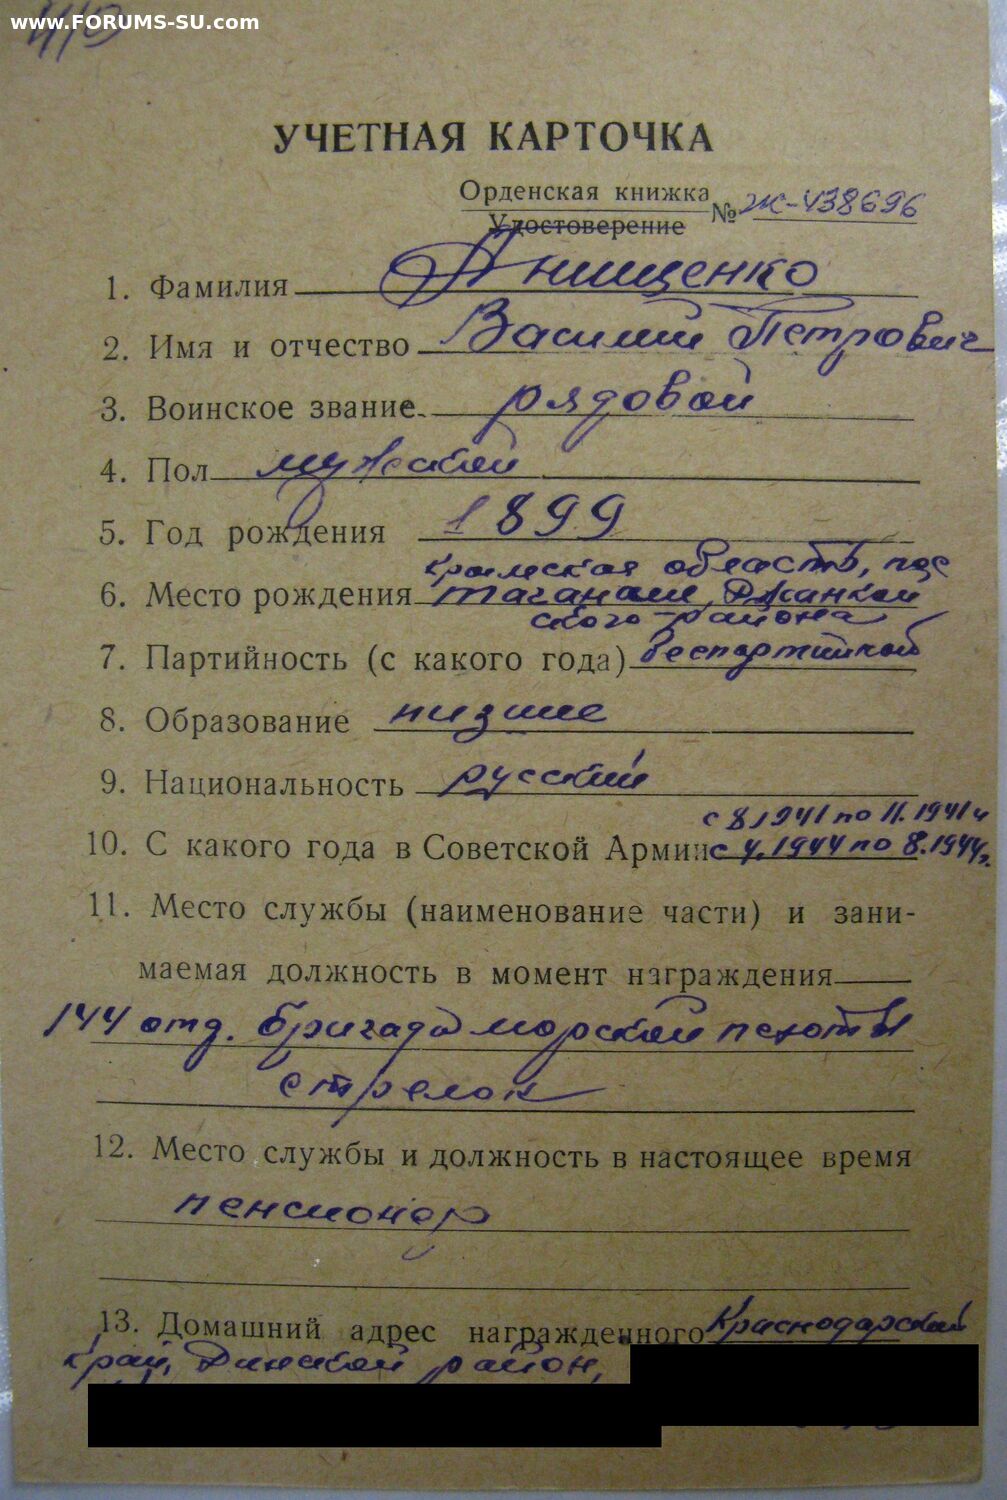 www.FORUMS-SU.com
УЧЕТНАЯ КАРТОЧКА
Орденская книжка
Удостоверение № Ж-438696
1. Фамилия Анищенко
2. Имя и отчество Василий Петрович
3. Воинское звание рядовой
4. Пол мужской
5. Год рождения 1899
Крымская область, пос
6. Место рождения Таганаш, Джанкой
ского района
7. Партийность (с какого года) беспартийный
8. Образование низшее
9. Национальность русский
с 8.1941 по 11.1941 и
10. С какого года в Советской Армии с 4.1944 по 8.1944г.
11. Место службы (наименование части) и зани-
маемая должность в момент награждения
144 отд. бригада морской пехоты
стрелок
12. Место службы и должность в настоящее время
пенсионер
13. Домашний адрес награжденного Краснодарский
край, Динской район,